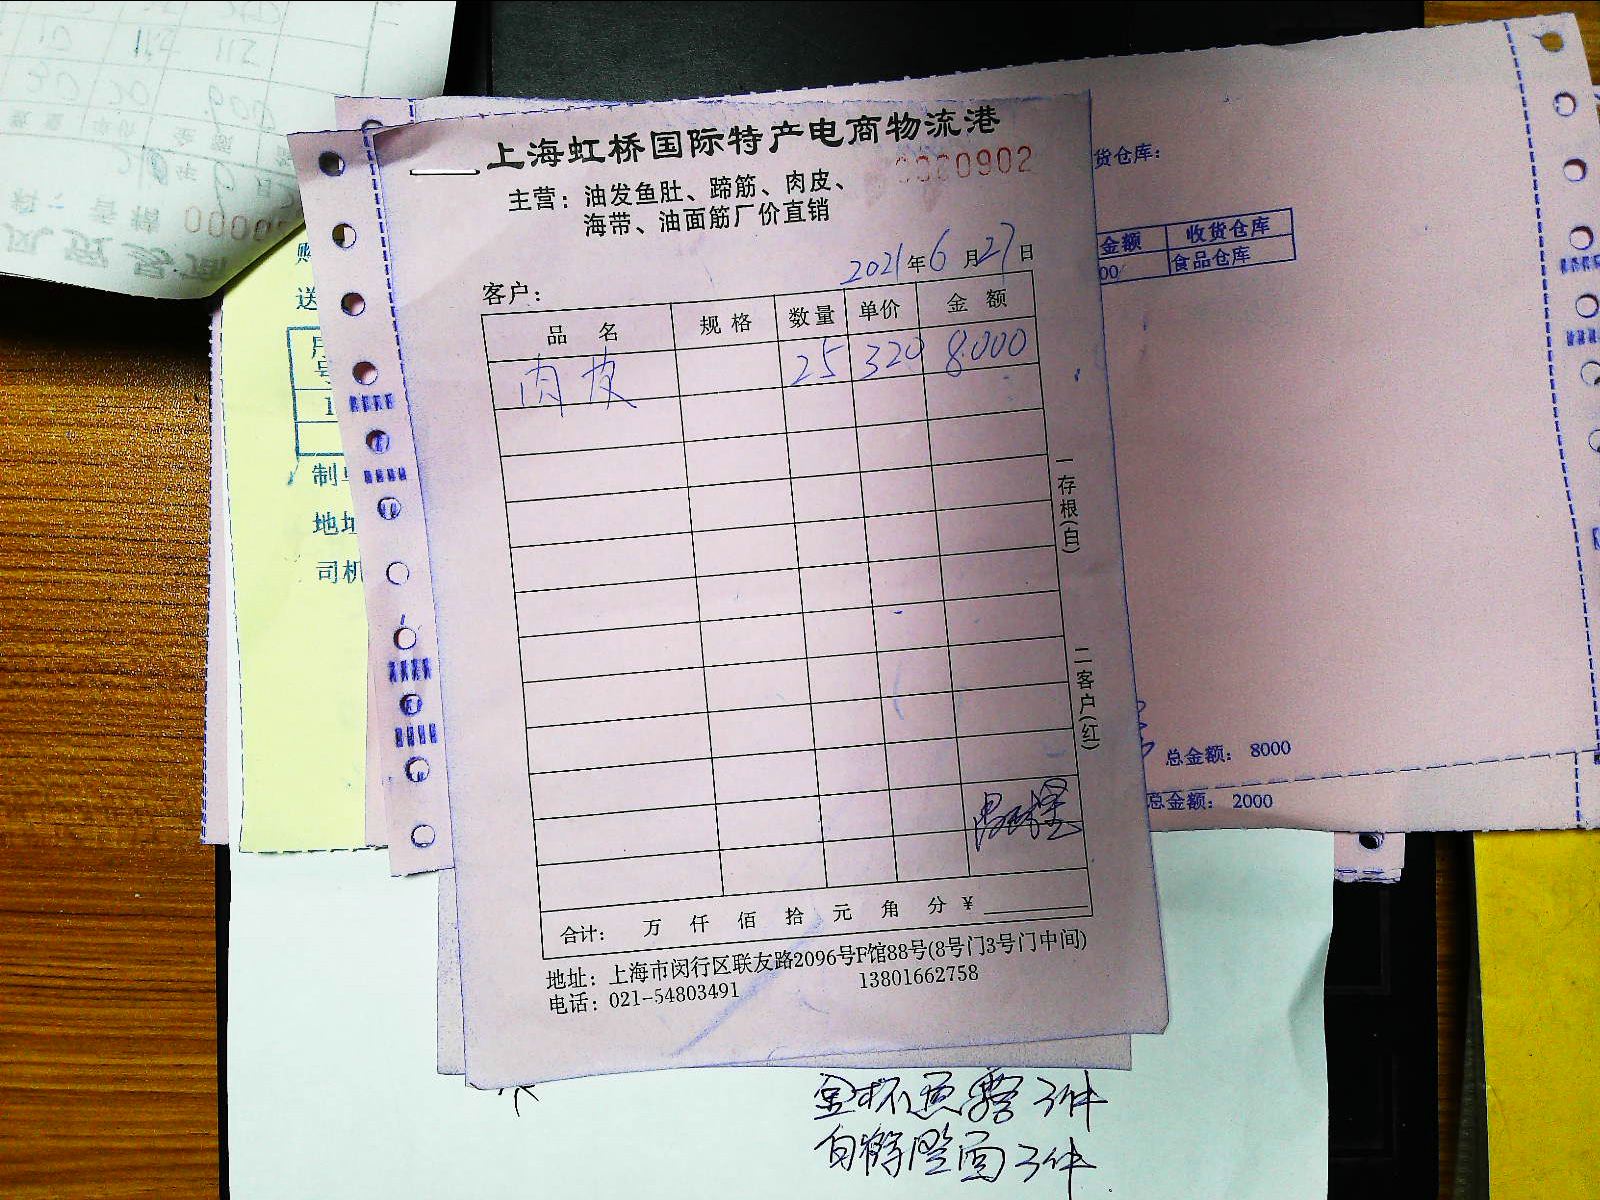 上海虹桥国际特产电商物流港
0000902
主营：油发鱼肚、蹄筋、肉皮、
海带、油面筋厂价直销
2021年6月27日
客户：
品 名 规 格 数量 单价 金 额
肉皮 25 320 8.000
一存根(白)
二客户(红)
合计： 万 仟 佰 拾 元 角 分 ¥
地址：上海市闵行区联友路2096号F馆88号(8号门3号门中间)
电话：021-54803491 13801662758
货仓库：
金额 收货仓库
00 食品仓库
总金额： 8000
总金额： 2000
送
号
1
制单
地址
司机
3件
白 面 3件